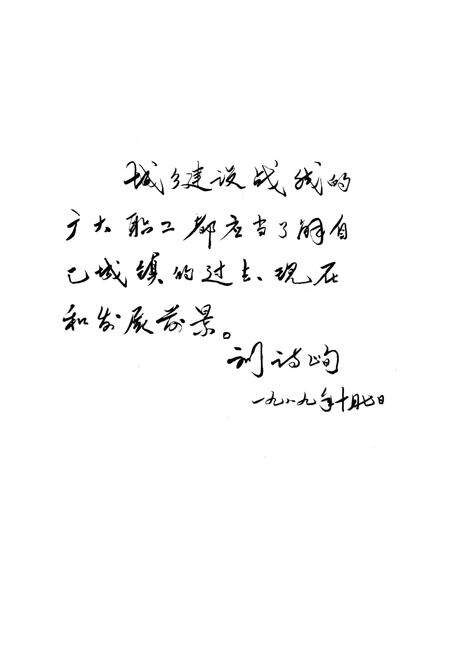 城乡建设战线的
广大职工都应当了解自
己城镇的过去、现在
和发展前景。
刘诗峋
一九八九年十月七日